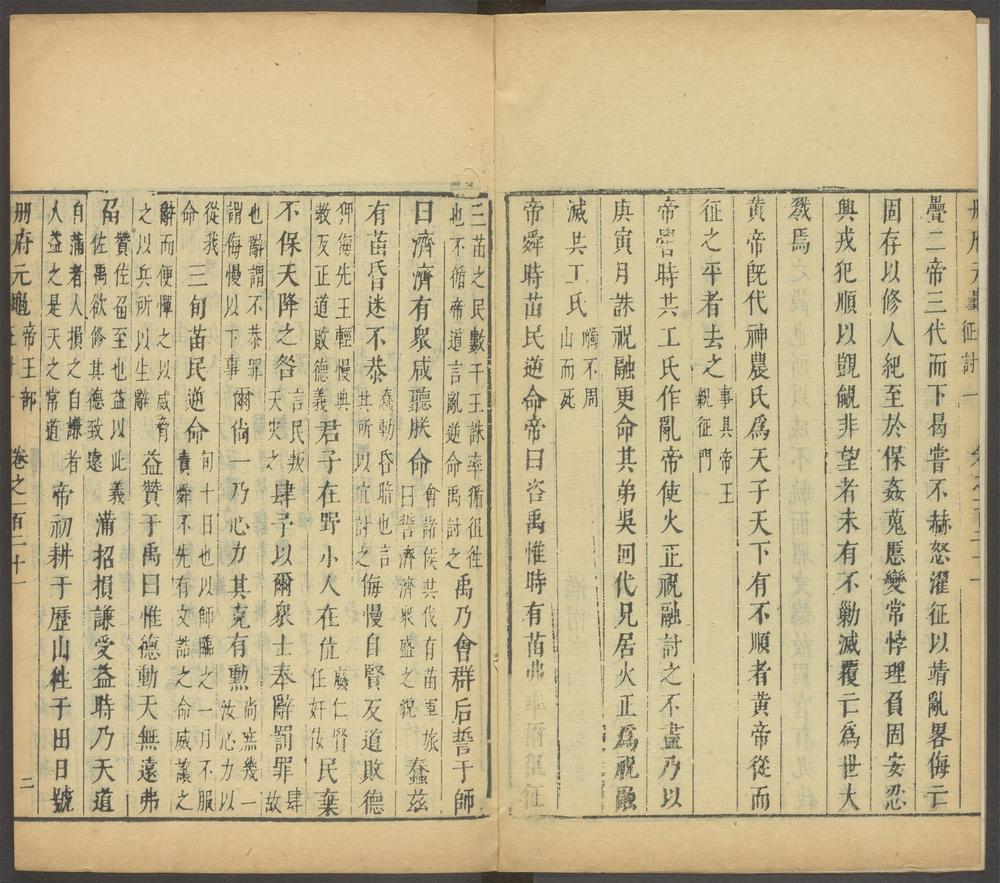 冊府元龜 征討一
疊二帝三代而下曷嘗不赫怒濯征以靖亂畧侮亡
固存以修人紀至於保姦蒐慝變常悖理負固安忍
興戎犯順以覬覦非望者未有不勦滅覆亡爲世大
戮焉
黃帝旣代神農氏爲天子天下有不順者黃帝從而
征之平者去之事具帝王親征門
帝嚳時共工氏作亂帝使火正祝融討之不盡乃以
庚寅月誅祝融更命其弟吳回代兄居火正爲祝融
滅共工氏觸不周山而死
帝舜時苗民逆命帝曰咨禹惟時有苗弗率爾徂征
三苗之民數干王誅率循徂往也不循帝道言亂逆命禹討之禹乃會群后誓于師
曰濟濟有衆咸聽朕命會諸侯共伐有苗軍旅曰誓濟濟衆盛之貌蠢茲
有苗昏迷不恭蠢動昏暗也言其所以宜討之侮慢自賢反道敗德
狎侮先王輕慢典教反正道敗德義君子在野小人在位廢仁賢任奸佞民棄
不保天降之咎言民叛天災之肆予以爾衆士奉辭罰罪肆故
也辭謂不恭罪謂侮慢以下事爾尚一乃心力其克有勳尚庶幾一汝心力以
從我命三旬苗民逆命旬十日也以師臨之一月不服責舜不先有文誥之命威讓之
辭而便憚之以威脅之以兵所以生辭益贊于禹曰惟德動天無遠弗
屆贊佐屆至也益以此義佐禹欲修其德致遠滿招損謙受益時乃天道
自滿者人損之自謙者人益之是天之常道帝初耕于歷山往于田日號
冊府元龜帝王部 卷之一百二十一 二